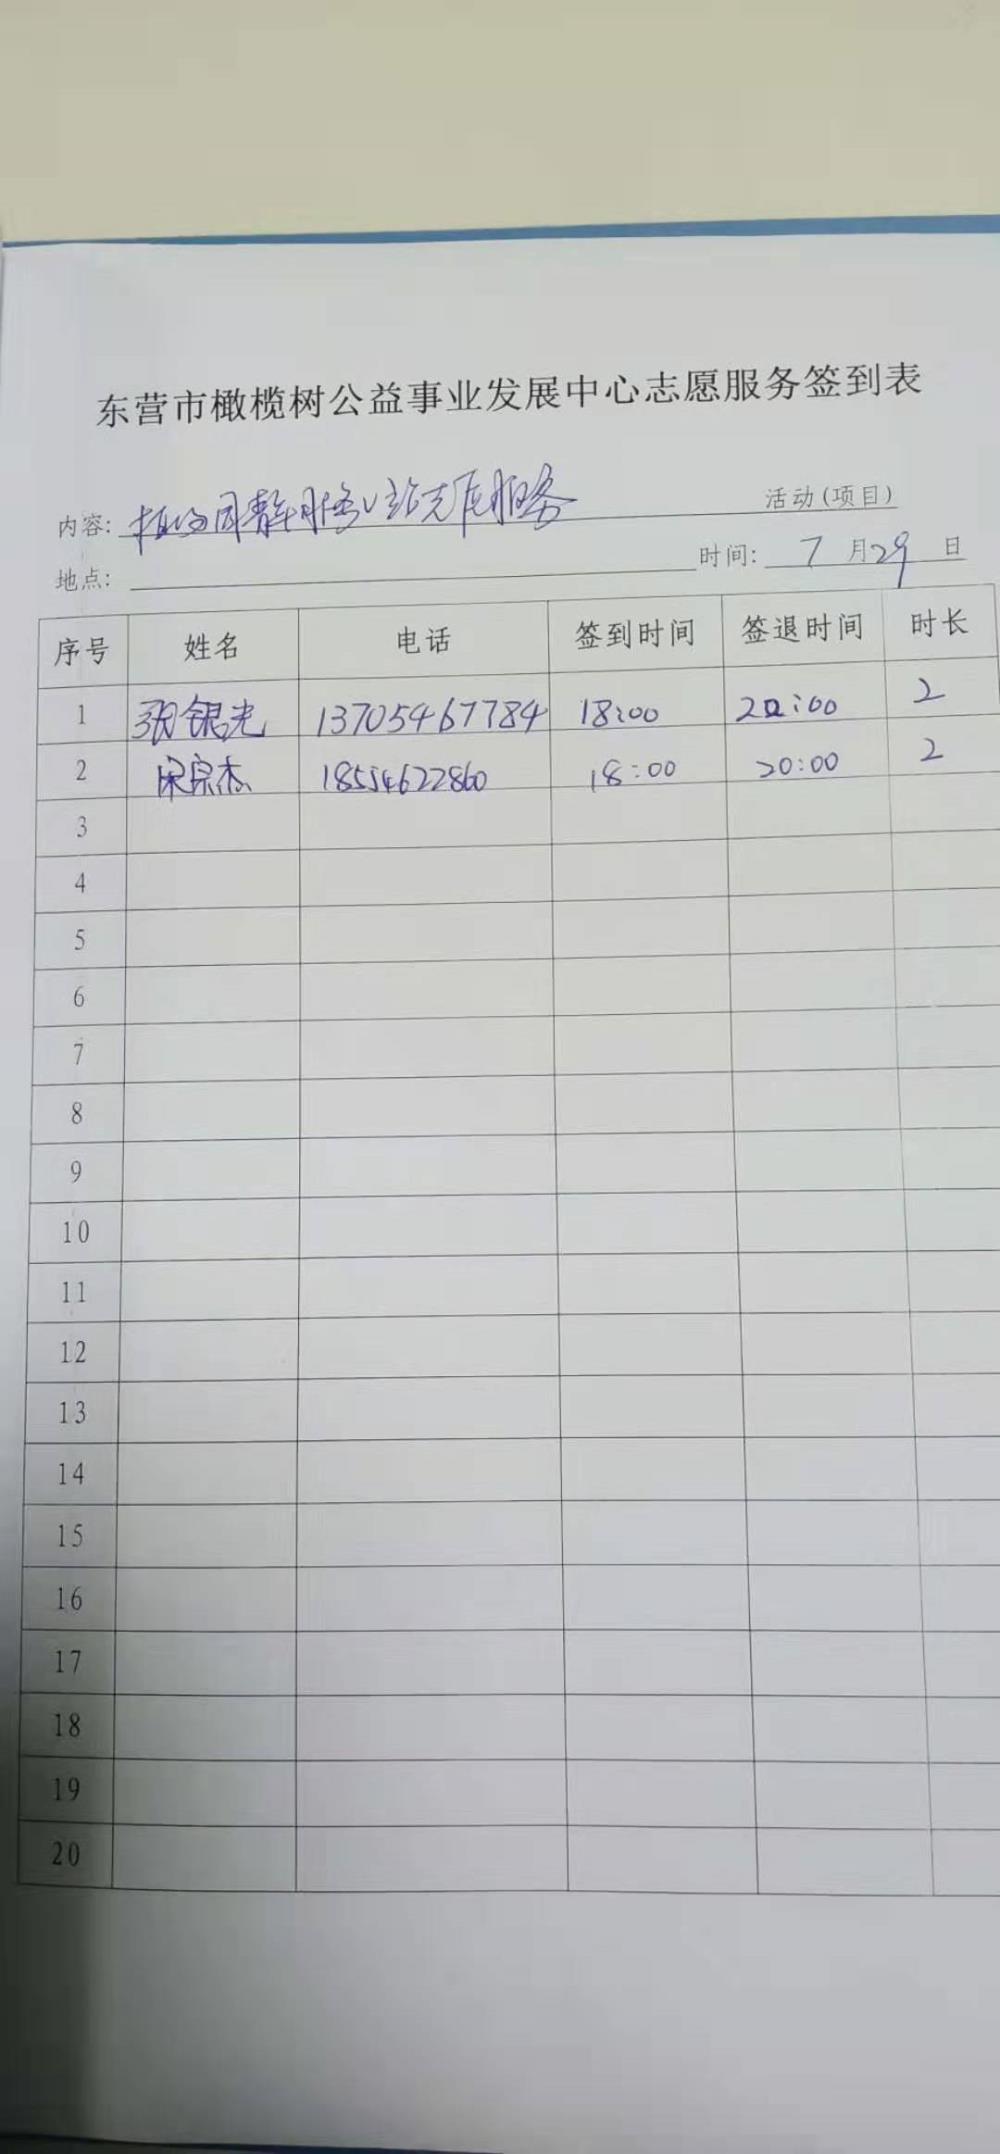 东营市橄榄树公益事业发展中心志愿服务签到表
内容: 植物园 服务 活动(项目)
地点: 时间: 7 月 29 日
序号 姓名 电话 签到时间 签退时间 时长
1 张银光 13705467784 18:00 20:00 2
2 宋宗杰 18554622860 18:00 20:00 2
3
4
5
6
7
8
9
10
11
12
13
14
15
16
17
18
19
20